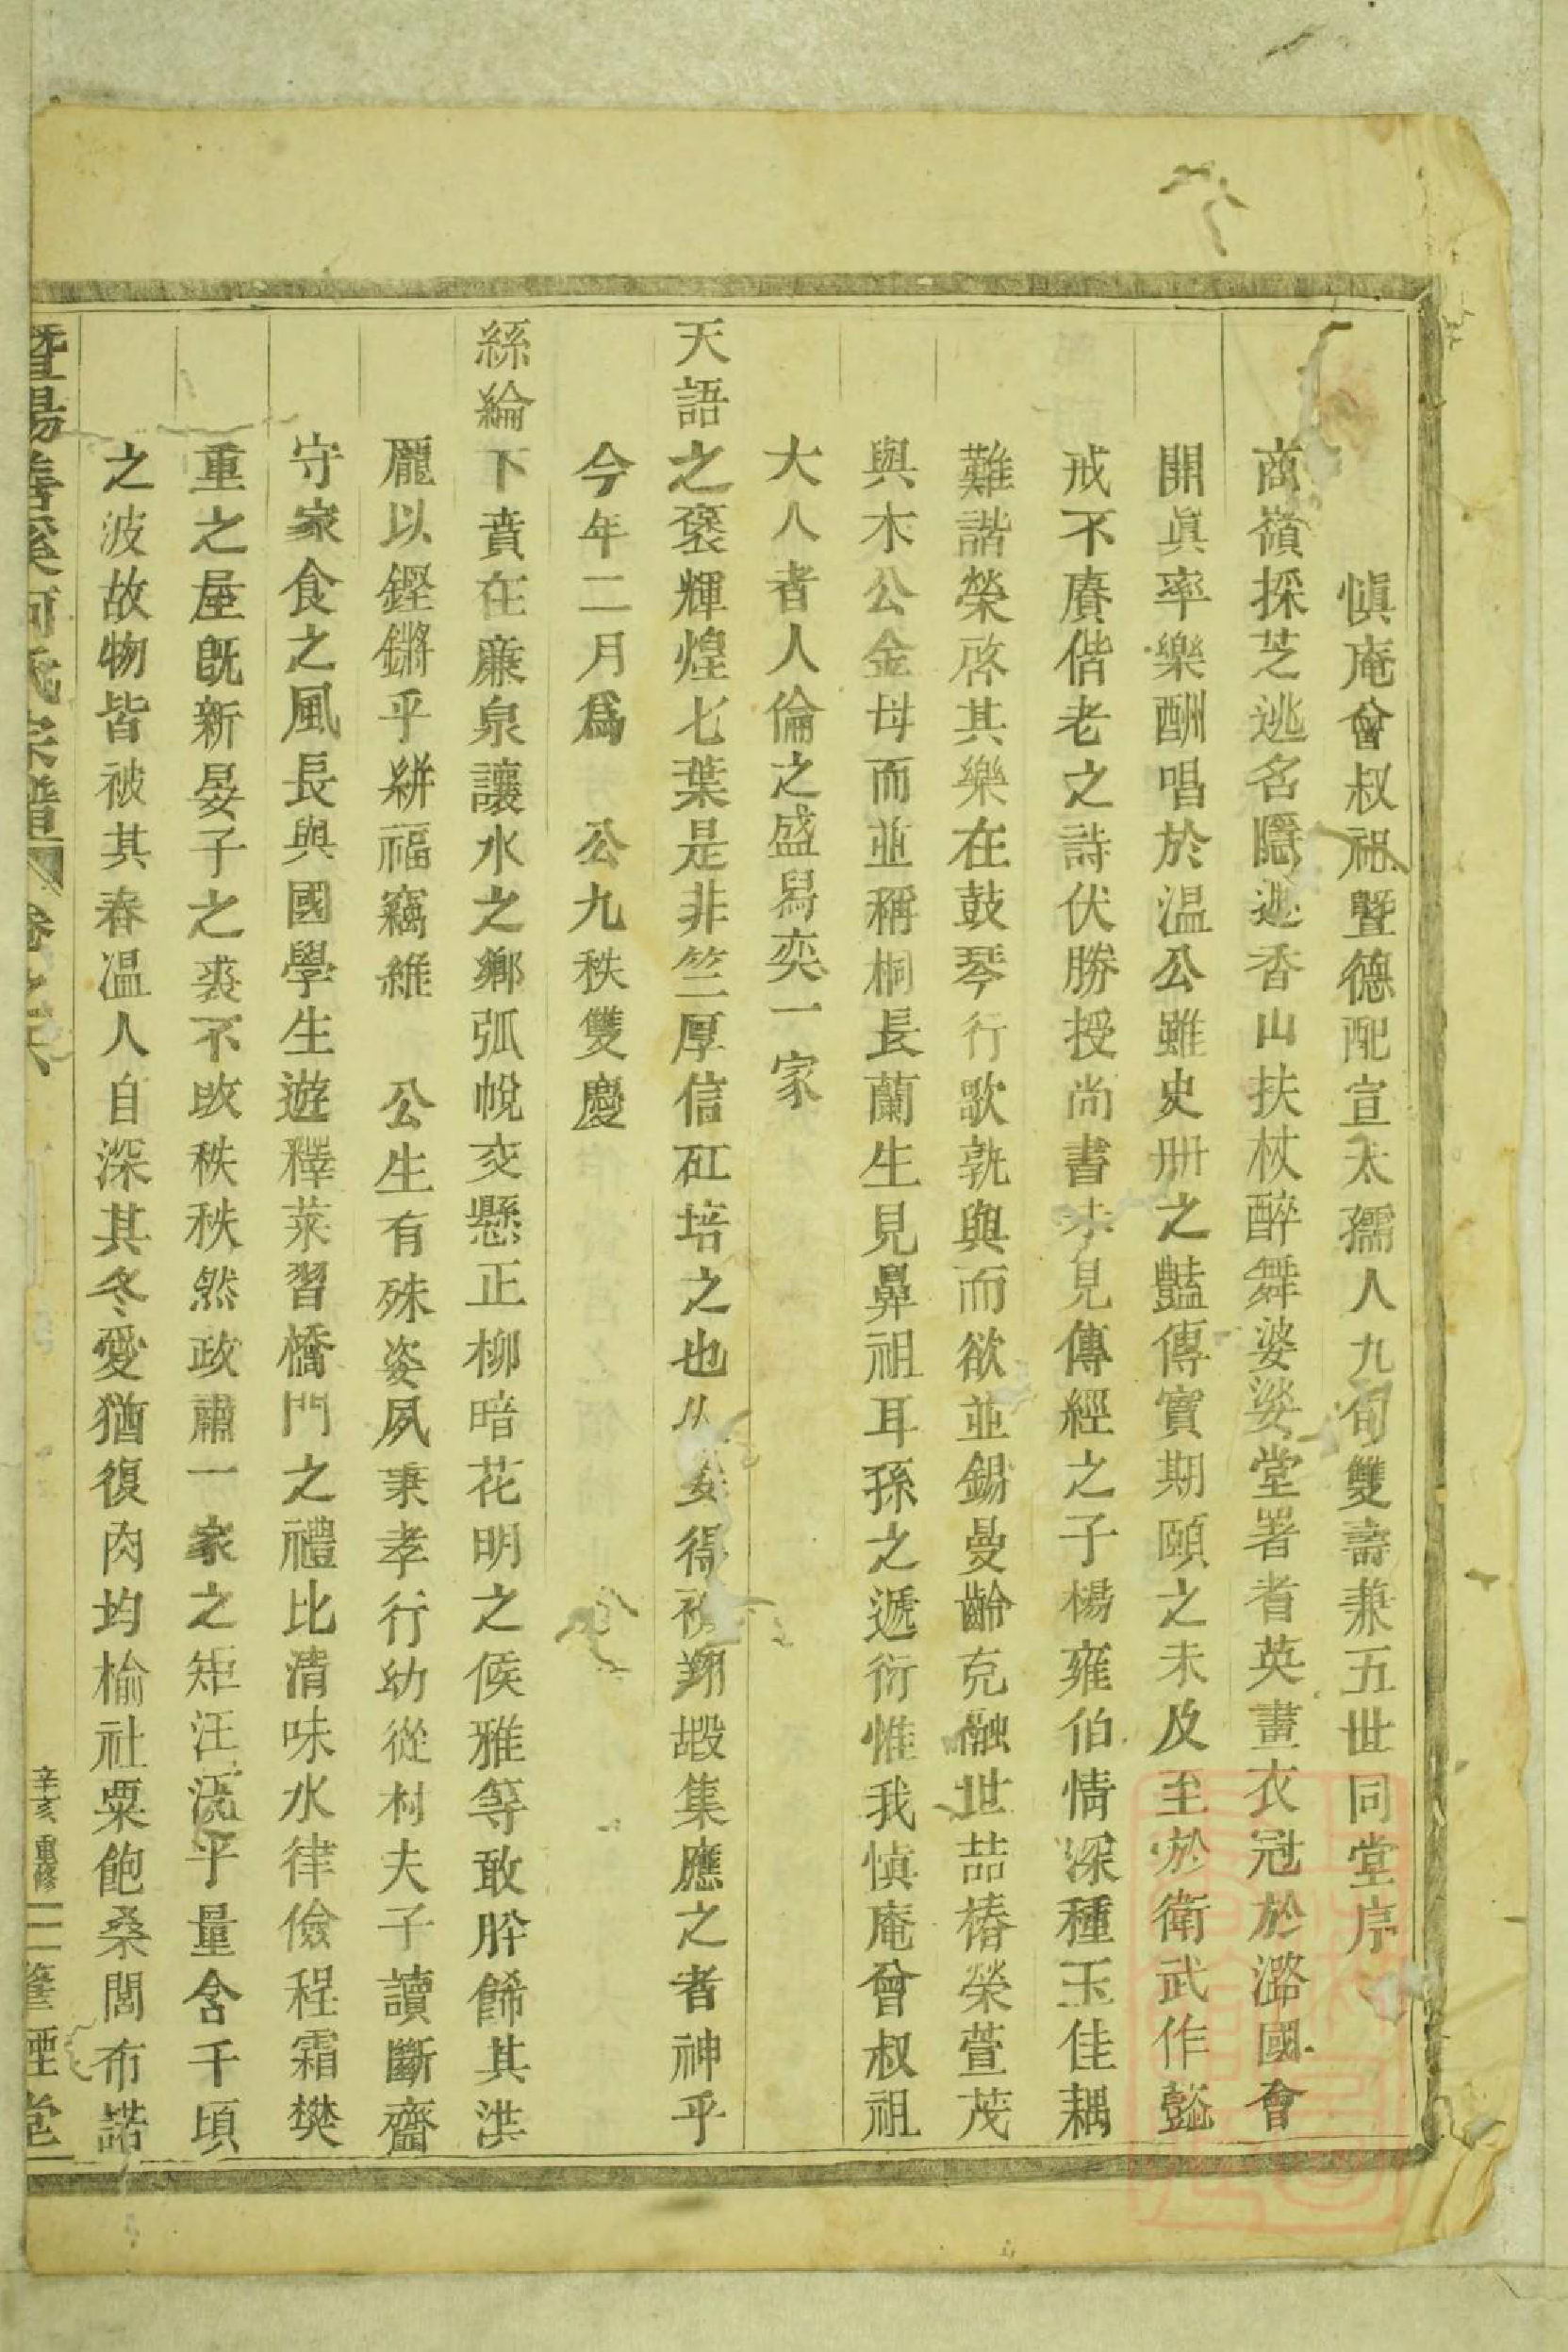 慎庵會叔祖曁德配宣太孺人九旬雙壽兼五世同堂序
商嶺採芝逃名隱逸香山扶杖醉舞婆娑堂署耆英畫衣冠於潞國會
開眞率樂酬唱於温公雖史册之豔傳實期頤之未及至於衛武作懿
戒不賡偕老之詩伏勝授尚書未見傳經之子楊雍伯情深種玉佳耦
難諧榮啓其樂在鼓琴行歌孰與而欲並錫曼齡克融世喆椿榮萱茂
與木公金母而並稱桐長蘭生見鼻祖耳孫之遞衍惟我慎庵會叔祖
大人者人倫之盛舄奕一家
天語之褒輝煌七葉是非竺厚信矼培之也從安得禎翔嘏集應之者神乎
今年二月爲 公九秩雙慶
絲綸下賁在廉泉讓水之鄉弧帨交懸正柳暗花明之候雅等敢胖餙其洪
龐以鏗鏘乎絣福竊維 公生有殊姿夙秉孝行幼從村夫子讀斷齏
守家食之風長與國學生遊釋菜習橋門之禮比清味水律儉程霜樊
重之屋旣新晏子之裘不改秩秩然政肅一家之矩汪汪乎量含千頃
之波故物皆被其春温人自深其冬愛猶復肉均榆社粟飽桑閭布諾
曁陽善溪何氏宗譜 卷之六 辛亥重修 二 肇禋堂